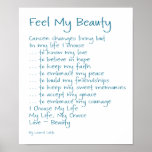 Feel My Beauty
Cancer changes living but
in my life I choose
to know love
to believe in hope
to keep faith
to embrace my peace
to build my friendships
to keep my sweet memories
to accept my peace
to embrace my courage
I Choose My Life
My Life, My Grace
Live - Beauty